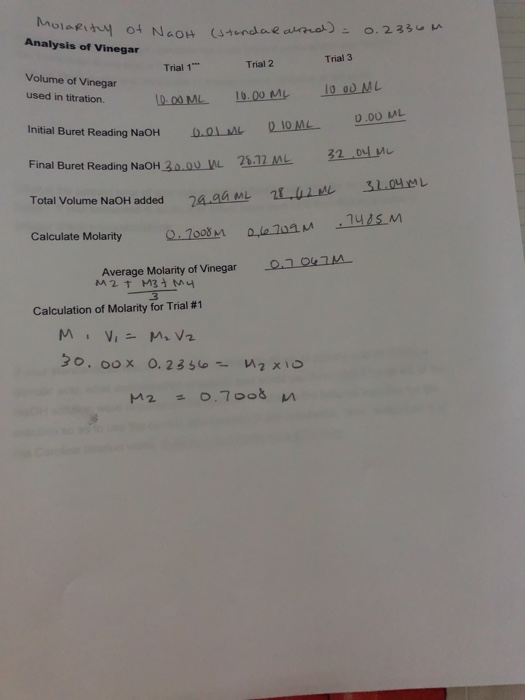 Molarity of NaOH (standardized) = 0.2336 M
Analysis of Vinegar
Trial 1*** Trial 2 Trial 3
Volume of Vinegar
used in titration. 10.00 ML 10.00 ML 10.00 ML
Initial Buret Reading NaOH 0.01 ML 0.10 ML 0.00 ML
Final Buret Reading NaOH 30.00 ML 28.72 ML 32.04 ML
Total Volume NaOH added 29.99 ML 28.62 ML 32.04 ML
Calculate Molarity 0.7008 M 0.6709 M .7485 M
Average Molarity of Vinegar 0.7067 M
M2 + M3 + M4
3
Calculation of Molarity for Trial #1
M1 V1 = M2 V2
30.00 x 0.2336 = M2 x 10
M2 = 0.7008 M